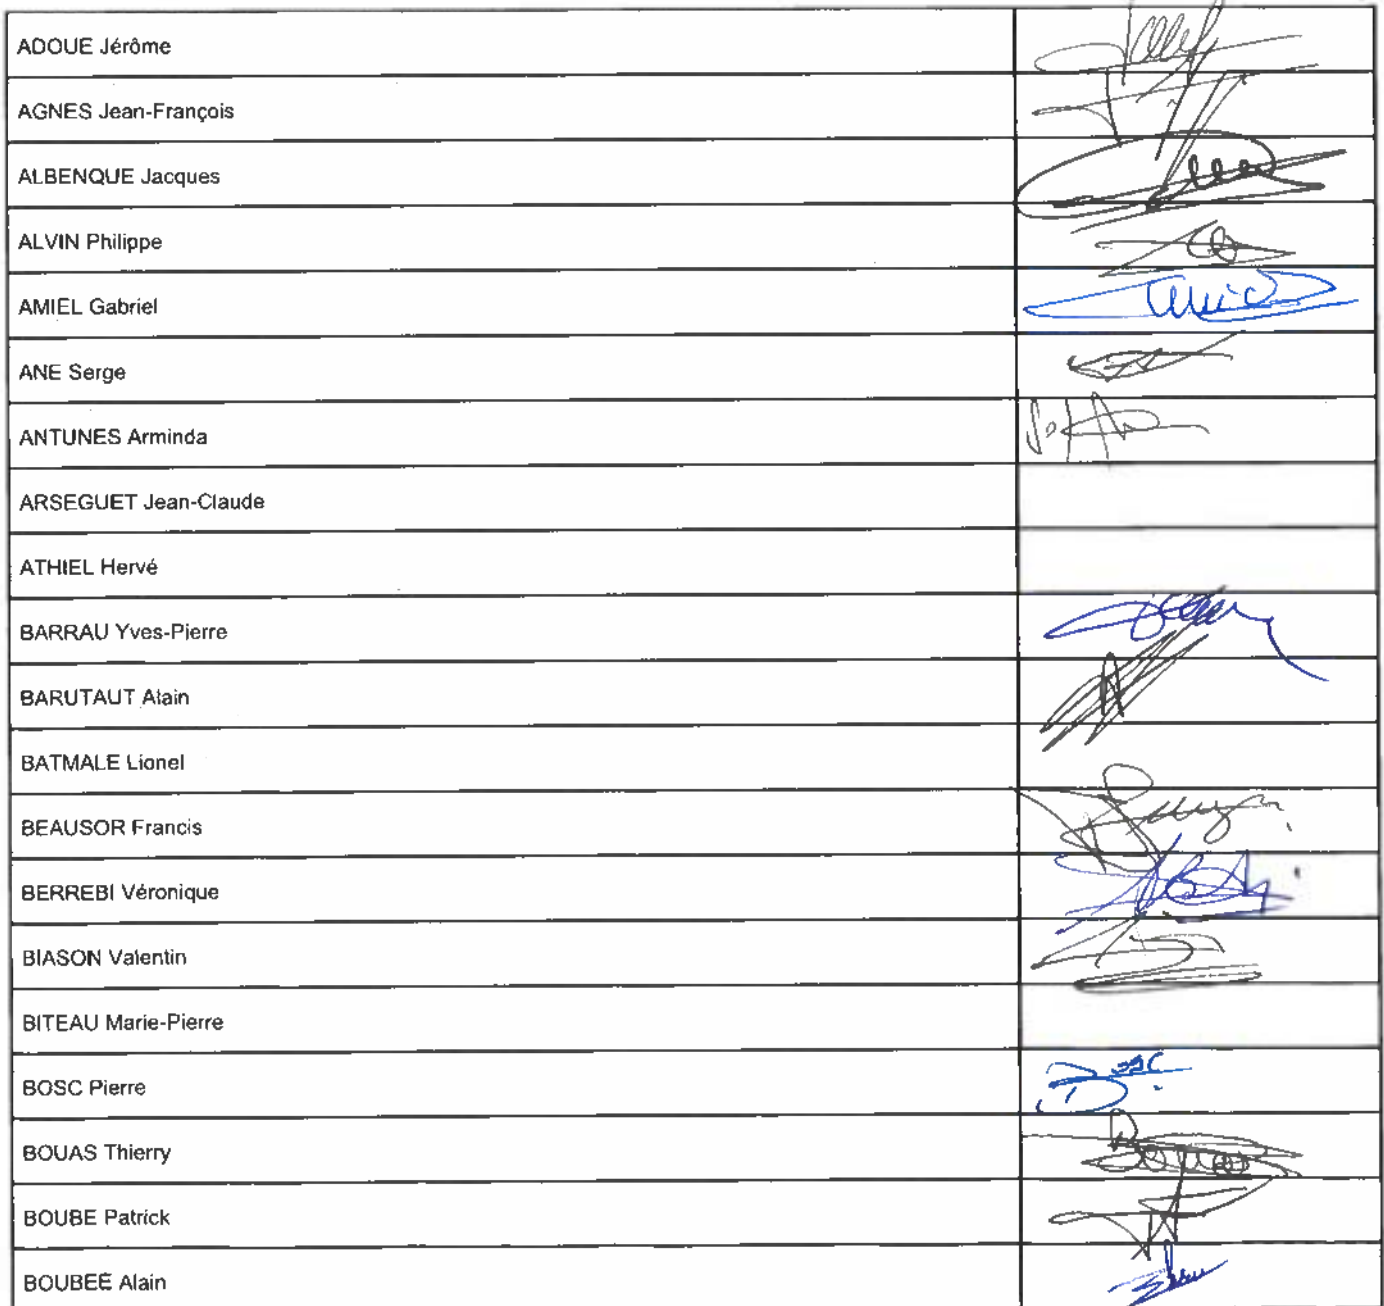 ADOUE Jérôme
AGNES Jean-François
ALBENQUE Jacques
ALVIN Philippe
AMIEL Gabriel
ANE Serge
ANTUNES Arminda
ARSEGUET Jean-Claude
ATHIEL Hervé
BARRAU Yves-Pierre
BARUTAUT Alain
BATMALE Lionel
BEAUSOR Francis
BERREBI Véronique
BIASON Valentin
BITEAU Marie-Pierre
BOSC Pierre
BOUAS Thierry
BOUBE Patrick
BOUBEE Alain